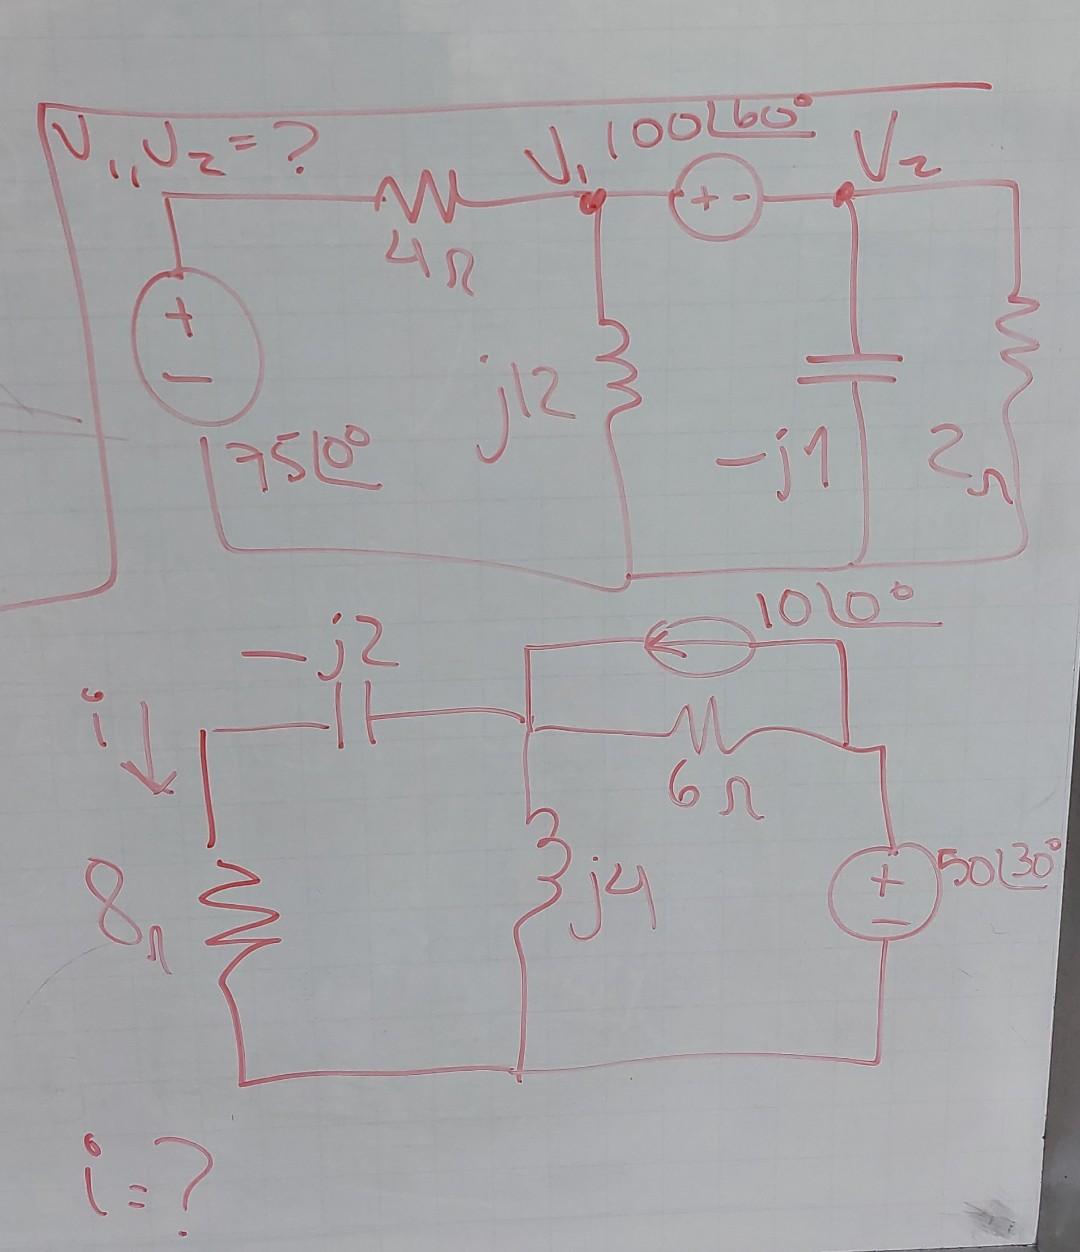 V₁, V₂ = ?
V₁
100∠60°
V₂
+ -
4Ω
+
−
j12
75∠0°
-j1
2Ω
10∠0°
-j2
i
6Ω
8Ω
j4
+
−
50∠30°
i = ?